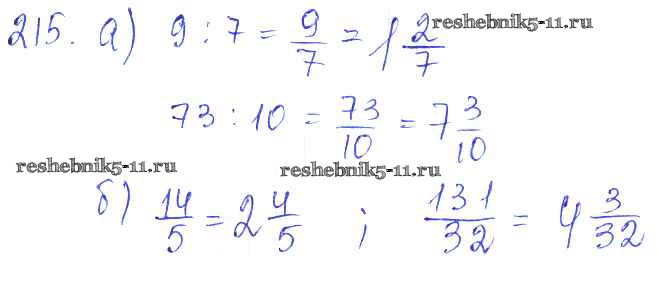 215. а) 9 : 7 = 9/7 = 1 2/7 reshebnik5-11.ru
73 : 10 = 73/10 = 7 3/10
reshebnik5-11.ru reshebnik5-11.ru
б) 14/5 = 2 4/5 ; 131/32 = 4 3/32